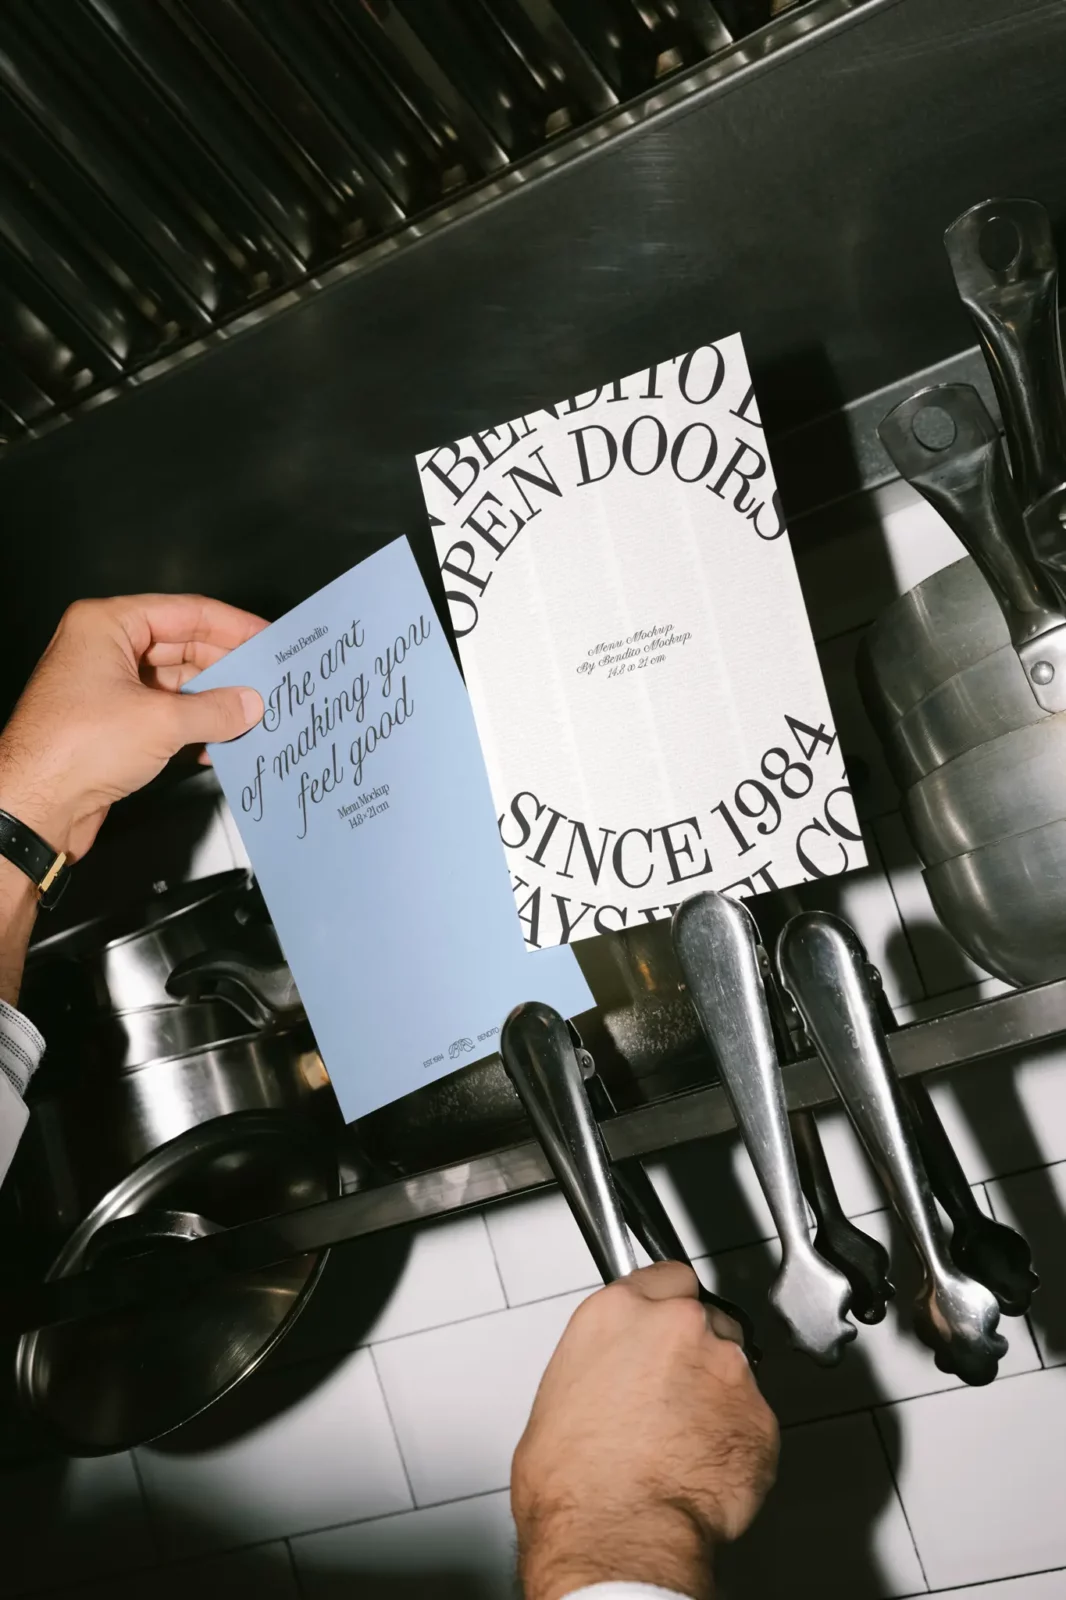 Mesón Bendito
The art
of making you
feel good
Menu Mockup
14.8 × 21 cm
EST. 1984
BENDITO
BENDITO
OPEN DOORS
Menu Mockup
By Bendito Mockup
14.8 x 21 cm
SINCE 1984